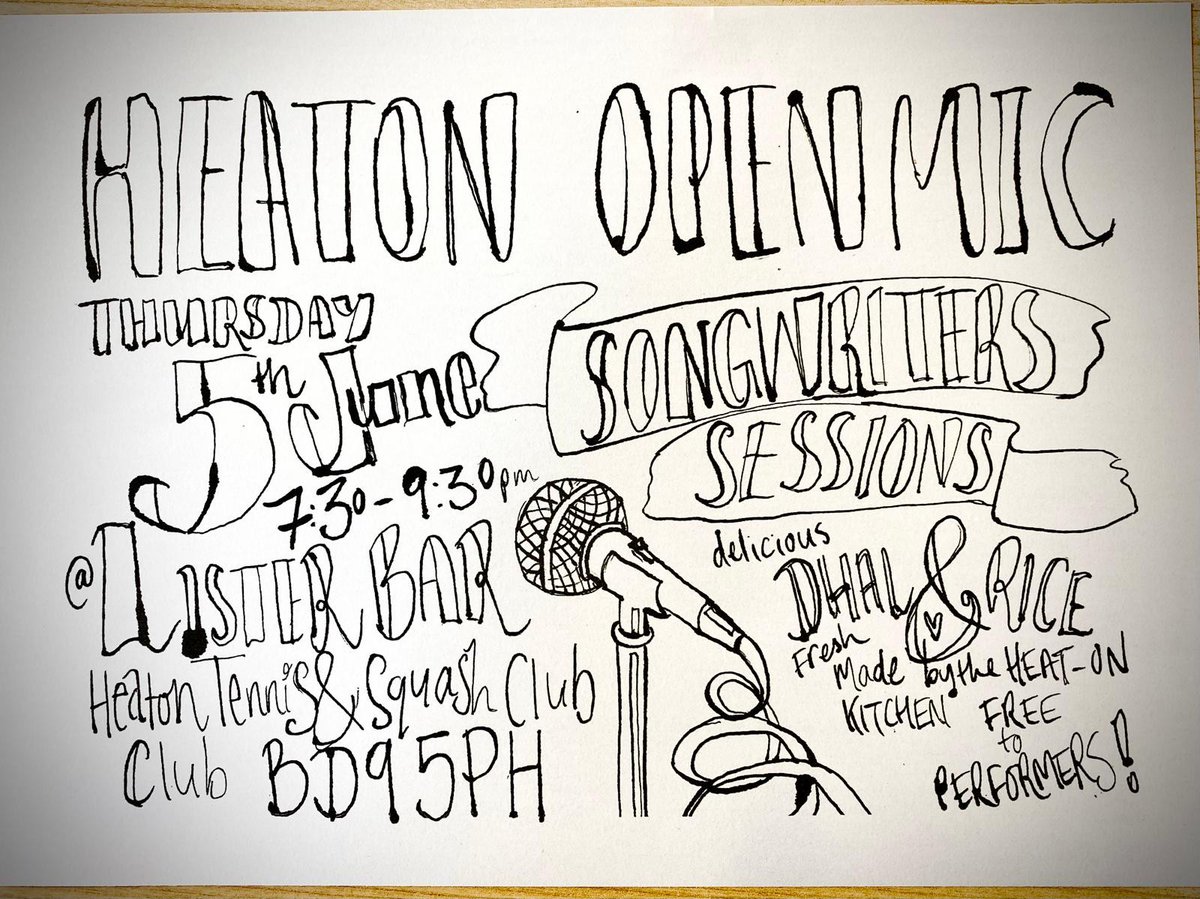 HEATON OPEN MIC
THURSDAY
5th June
7:30-9:30pm
@ LISTER BAR
Heaton Tennis & Squash Club
Club BD9 5PH
SONGWRITERS
SESSIONS
delicious
DHAL & RICE
Fresh
Made by the HEAT-ON
KITCHEN FREE
to
PERFORMERS!